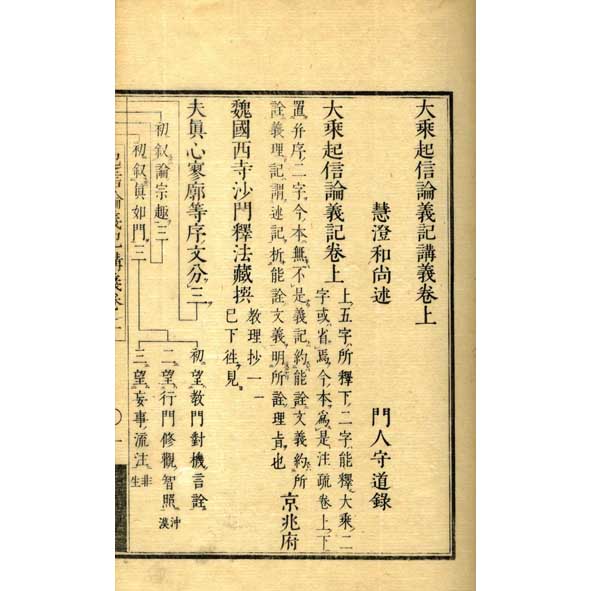 大乘起信論義記講義卷上
慧澄和尚述　門人守道錄
大乘起信論義記卷上
上五字所釋下二字能釋大乘二
字或省焉今本爲是注疏卷上下
置并序二字今本無不是義記約能詮文義約所
詮義理記謂述記析能詮文義明所詮理旨也
京兆府
魏國西寺沙門釋法藏撰
教理抄一一
已下徃見
夫眞心寥廓等序文分三
初叙論宗趣三
初叙眞如門三
初望教門對機言詮
二望行門修觀智照沖漠
三望妄事流注非生
起信論義記講義卷上
〇一